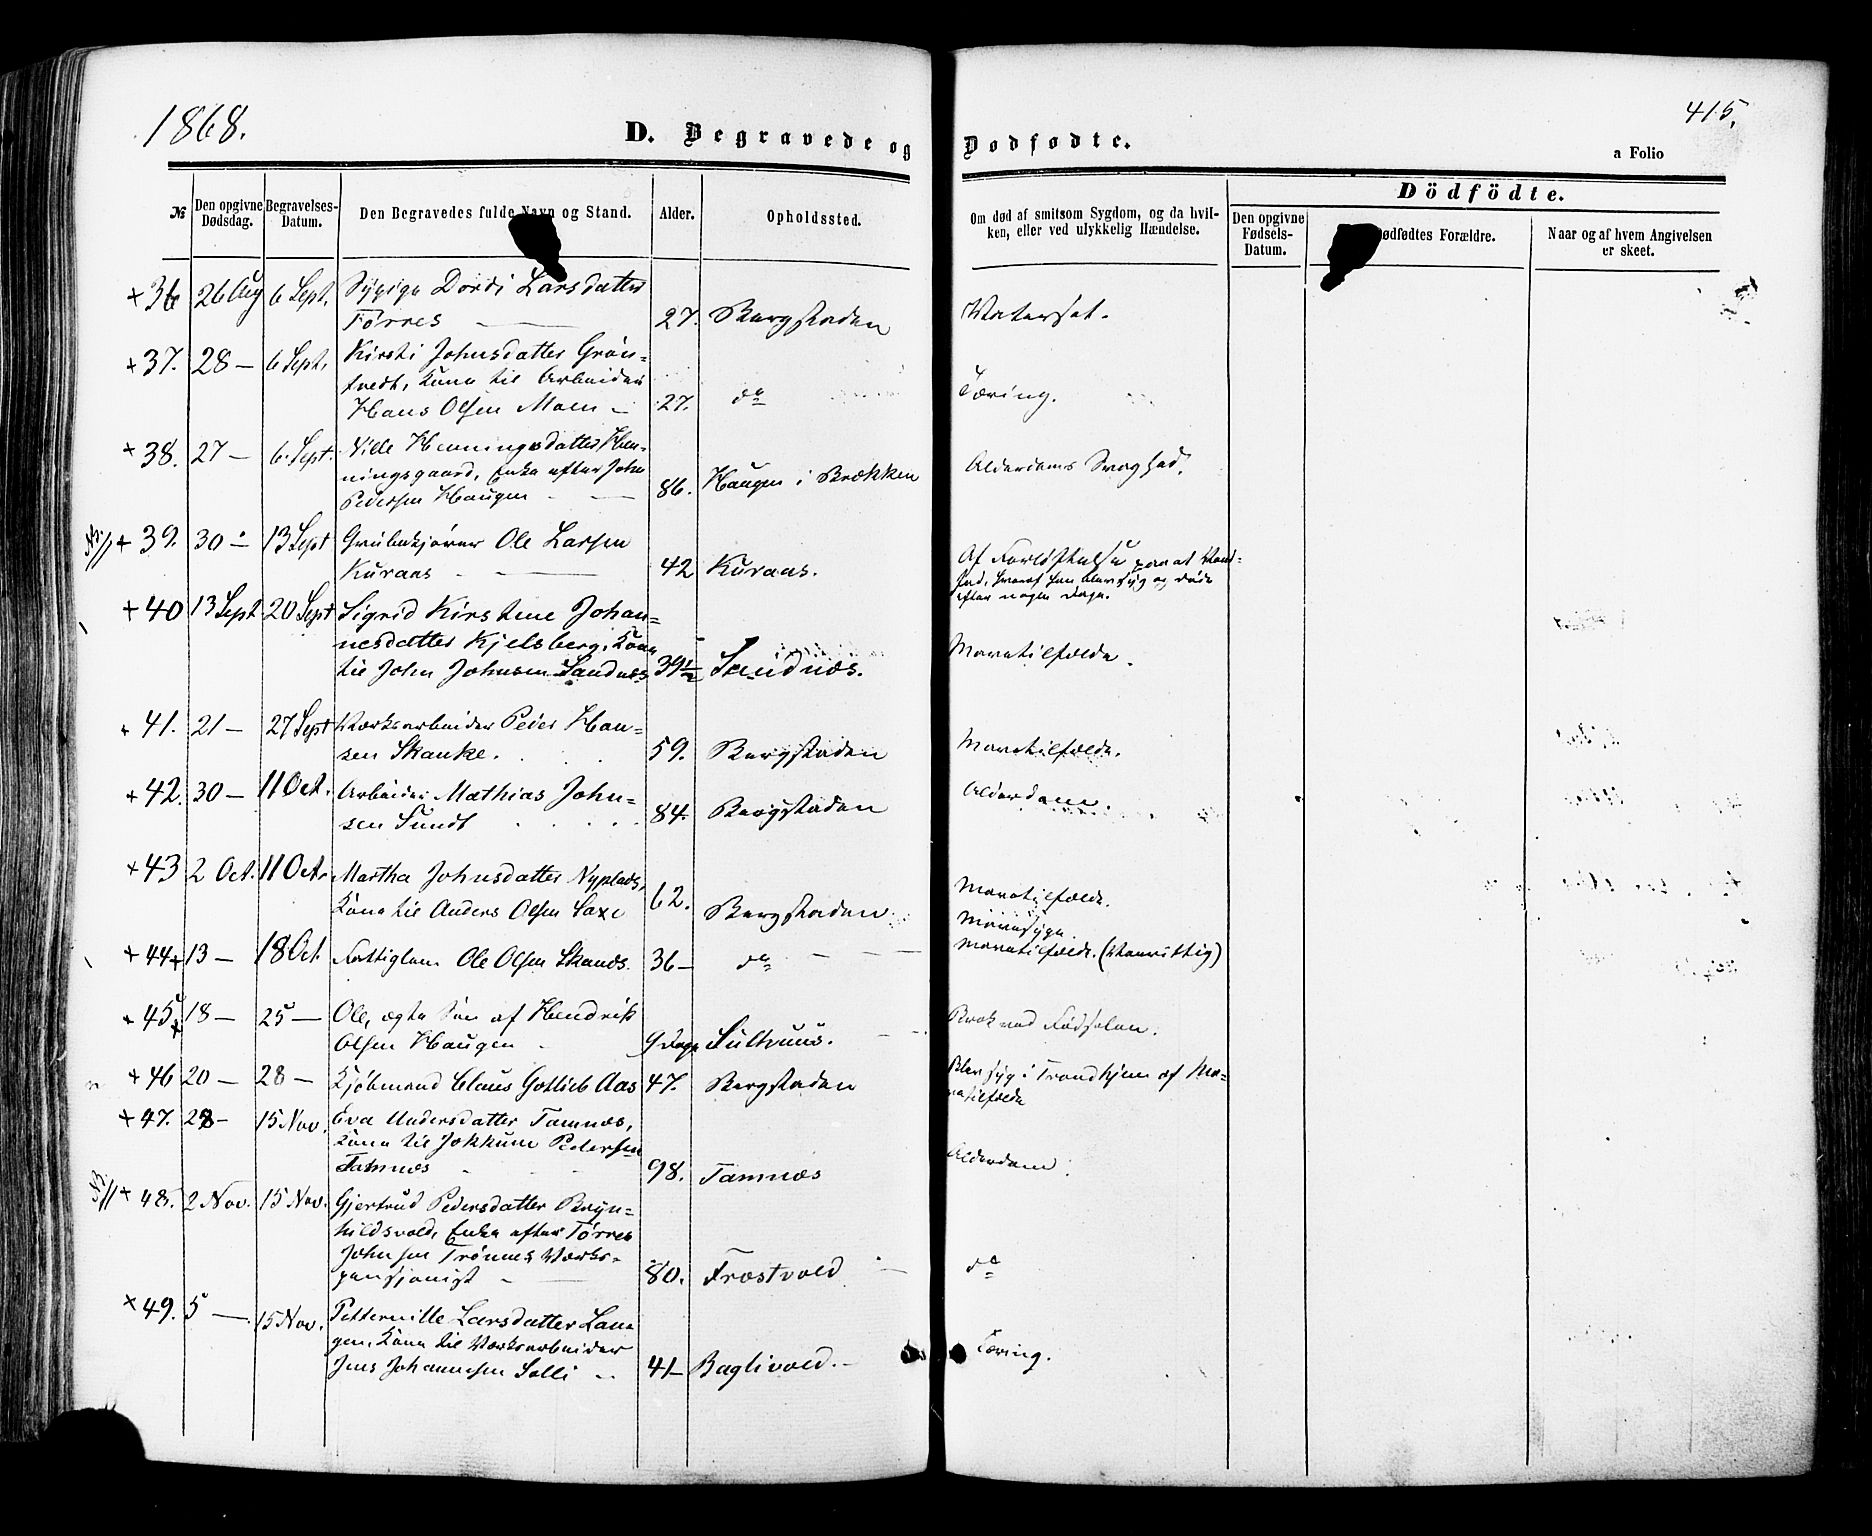 1868.
415.
D. Begravede og Dodfodte.
a Folio
Dödfödte.
№
Den opgivne Dødsdag.
Begravelses-Datum.
Den Begravedes fulde Navn og Stand.
Alder.
Opholdssted.
Om død af smitsom Sygdom, og da hvil-
ken, eller ved ulykkelig Hændelse.
Den opgivne Fødsels-Datum.
Dødfødtes Forældre.
Naar og af hvem Angivelsen er skeet.
+ 36 26 Aug 6 Sept. Dordi Larsdatter
Tørres 27. Bergstaden Vatersot.
+ 37. 28 – 6 Sept. Kirsti Johnsdatter Grøn-
tvedt, Kone til Arbeider
Hans Olsen Moen – 27. do Tæring.
+ 38. 27 – 6 Sept. Henningsdatter Hen-
ningsgaard, Enke efter John
Pedersen Haugen 86. Haugen i Brækken Alderdoms Svaghed.
+ 39. 30 – 13 Sept Grubekjører Ole Larsen
Kuraas 42 Kuraas. Af Forløftelse paa et
hvoraf han blev syg og døde
efter nogle Dage.
+ 40 13 Sept 20 Sept Sigrid Kirstine Johan-
nesdatter Kjelsberg, Kone
til John Johnsen Sandnes 39½ Sandnæs. Mavetilfælde.
+ 41. 21 – 27 Sept Værksarbeider Peder Han-
sen Skanke. 59. Bergstaden Mavetilfælde.
+ 42. 30 – 11 Oct. Arbeider Mathias John-
sen Sundt 84. Bergstaden Alderdom.
+ 43 2 Oct. 11 Oct. Martha Johnsdatter Nyplads,
Kone til Anders Olsen Saxe 62. Bergstaden Mavetilfælde.
Mavesyge
+ 44 + 13 – 18 Oct. Fattiglem Ole Olsen Skands. 36 – do Mavetilfælde. (Vanvittig)
+ 45 + 18 – 25 – Ole, ægte Søn af Hendrik
Olsen Haugen 9 Dage Brok ved Fødselen.
+ 46 20 – 28 – Kjøbmand Claus Gotlieb Aas 47. Bergstaden Blev syg i Trondhjem af Ma-
vetilfælde
+ 47. 28 – 15 Nov. Eva Andersdatter Tamnæs,
Kone til Jokkum Pedersen
Tamnæs 98. Tamnæs Alderdom.
+ 48. 2 Nov. 15 Nov. Gjertrud Pedersdatter Bryn-
hildsvold, Enke efter Tørres
Johnsen Trønnes Værks-
pensjonist 80. Frostvold do
+ 49. 5 – 15 Nov. Petternille Larsdatter Lan-
gen, Kone til Værksarbeider
Jens Johannesen Solli 41 – Baglivold. – Tæring.